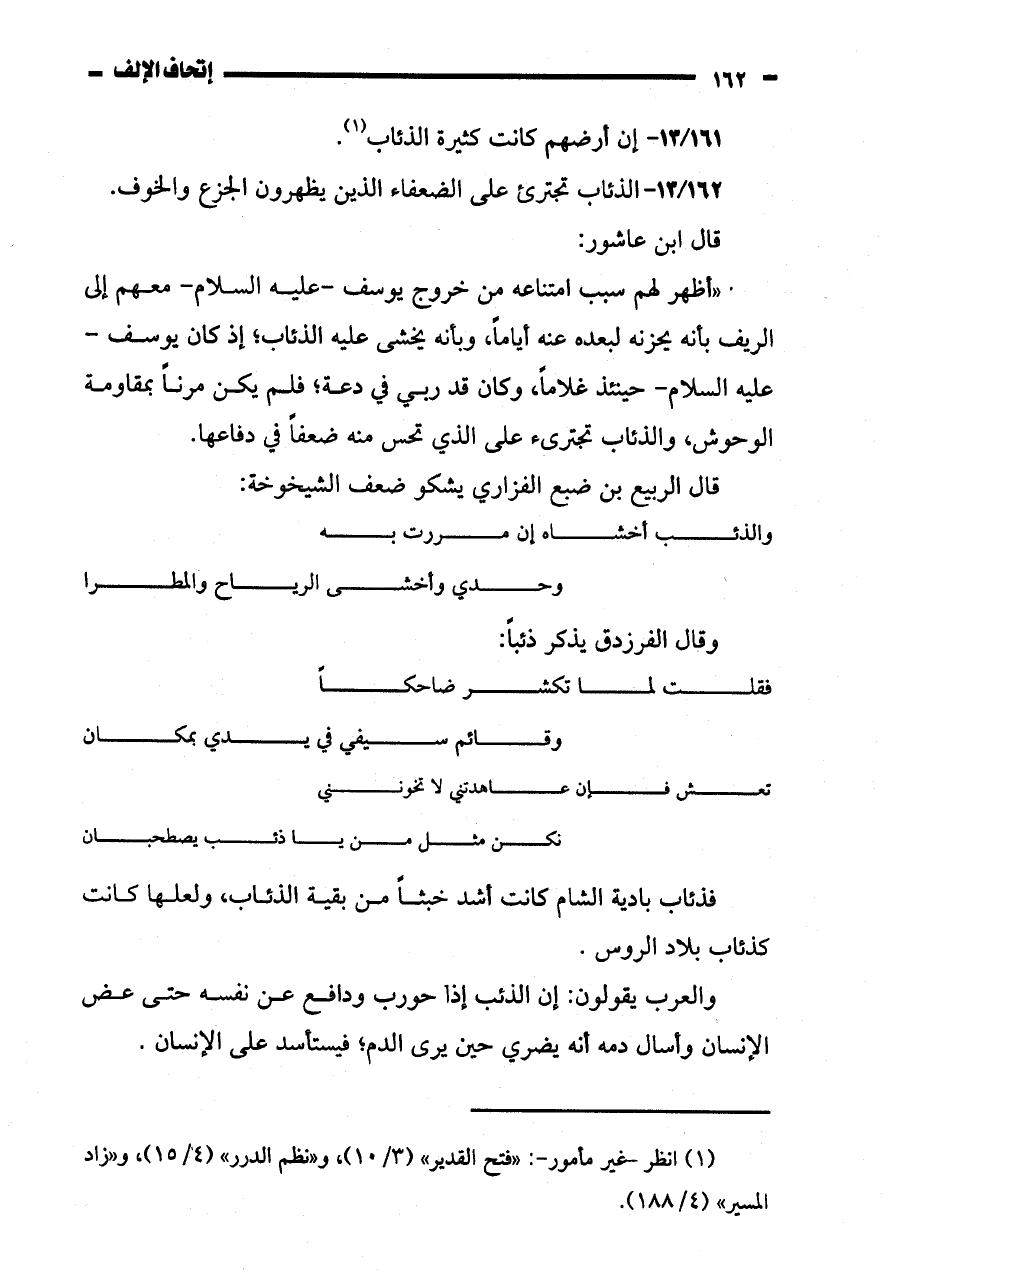 ١٦٢ إتحاف الإلف
١٣/١٦١- إن أرضهم كانت كثيرة الذئاب(١).
١٣/١٦٢- الذئاب تجترئ على الضعفاء الذين يظهرون الجزع والخوف.
قال ابن عاشور:
«أظهر لهم سبب امتناعه من خروج يوسف -عليه السلام- معهم إلى
الريف بأنه يحزنه لبعده عنه أياماً، وبأنه يخشى عليه الذئاب؛ إذ كان يوسف -
عليه السلام- حينئذ غلاماً، وكان قد ربي في دعة؛ فلم يكن مرناً بمقاومة
الوحوش، والذئاب تجترىء على الذي تحس منه ضعفاً في دفاعها.
قال الربيع بن ضبع الفزاري يشكو ضعف الشيخوخة:
والذئب أخشاه إن مررت به
وحدي وأخشى الرياح والمطرا
وقال الفرزدق يذكر ذئباً:
فقلت لما تكشر ضاحكاً
وقائم سيفي في يدي بمكان
تعش فإن عاهدتني لا تخونني
نكن مثل من يا ذئب يصطحبان
فذئاب بادية الشام كانت أشد خبثاً من بقية الذئاب، ولعلها كانت
كذئاب بلاد الروس .
والعرب يقولون: إن الذئب إذا حورب ودافع عن نفسه حتى عض
الإنسان وأسال دمه أنه يضري حين يرى الدم؛ فيستأسد على الإنسان .
(١) انظر -غير مأمور-: «فتح القدير» (٣/ ١٠)، و«نظم الدرر» (٤/ ١٥)، و«زاد
المسير» (٤/ ١٨٨).